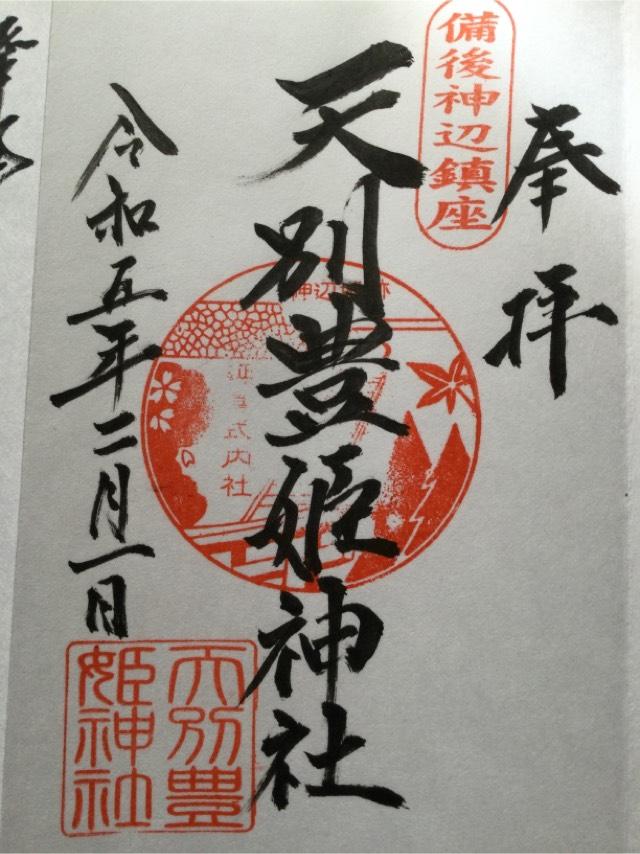 奉拝
備後神辺鎮座
天別豊姫神社
式内社
令和五年二月一日
天別豊
姫神社